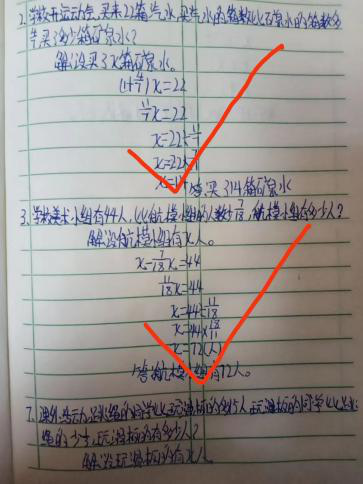 2.学校开运动会,买来22箱汽水,买汽水的箱数比矿泉水的箱数多
4/7,买了多少箱矿泉水?
解:设买了x箱矿泉水。
(1+4/7)x=22
11/7x=22
x=22÷11/7
x=22×7/11
x=14
答:买了14箱矿泉水
3.学校美术小组有44人,比航模小组的人数少7/18,航模小组有多少人?
解:设航模小组有x人。
x-7/18x=44
11/18x=44
x=44÷11/18
x=44×18/11
x=72(人)
答:航模小组有72人。
7.课外活动,跳绳的同学比玩滑梯的多5人,玩滑梯的同学比跳
绳的少,玩滑梯的有多少人?
解:设玩滑梯的有x人